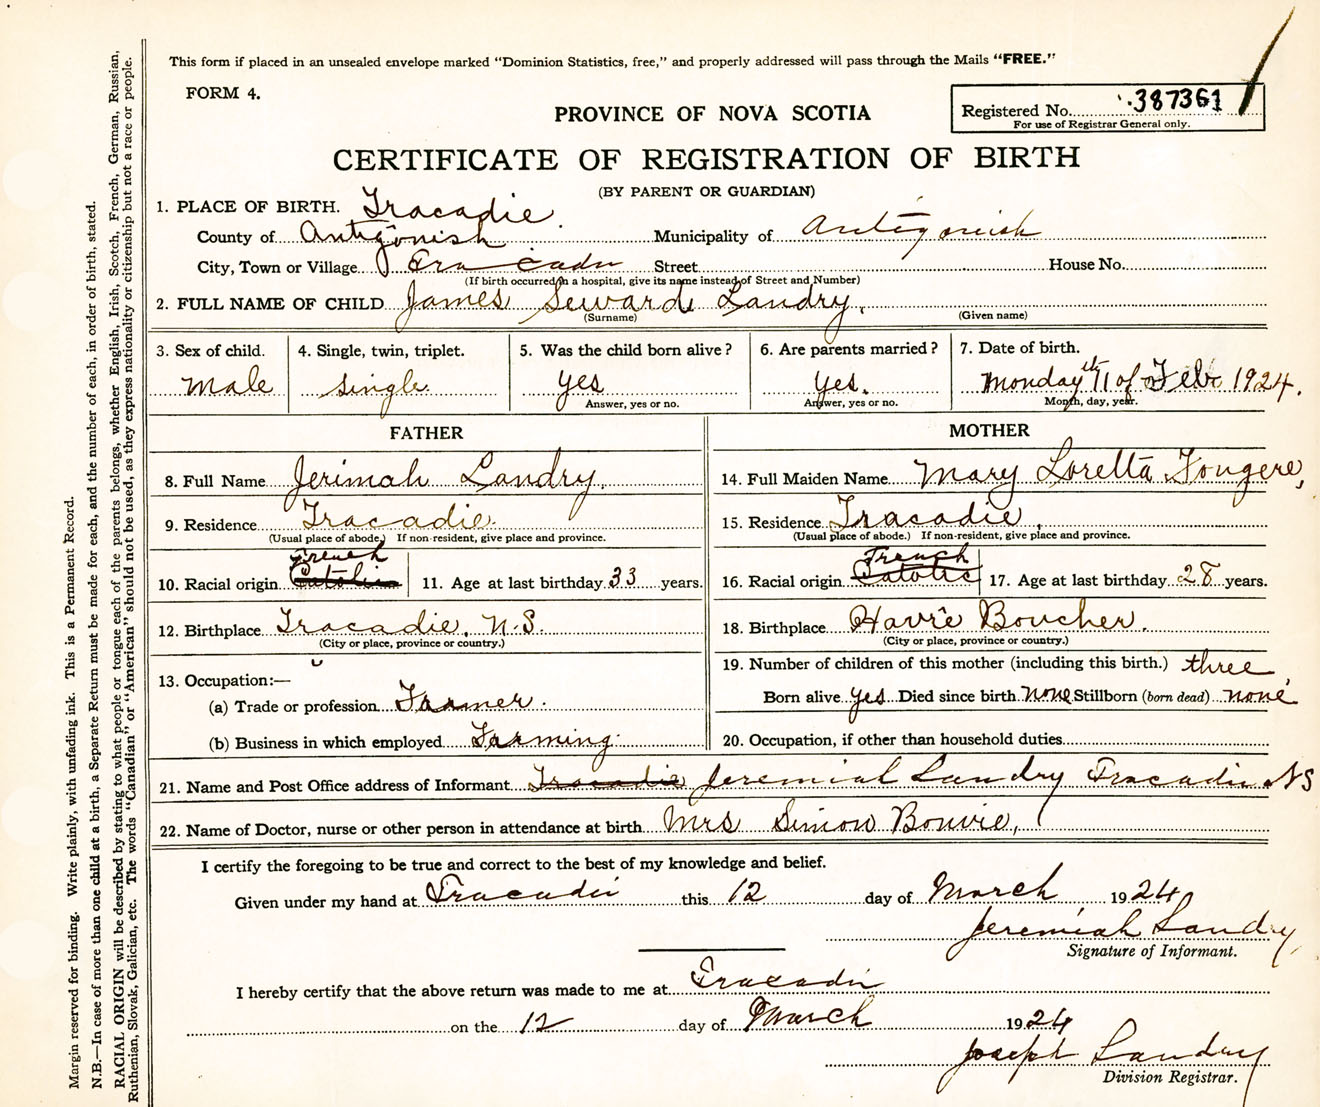 This form if placed in an unsealed envelope marked "Dominion Statistics, free," and properly addressed will pass through the Mails "FREE."
FORM 4.
PROVINCE OF NOVA SCOTIA
Registered No. 387361
For use of Registrar General only.
CERTIFICATE OF REGISTRATION OF BIRTH
(BY PARENT OR GUARDIAN)
1. PLACE OF BIRTH. Tracadie
County of Antigonish Municipality of Antigonish
City, Town or Village Tracadie Street House No.
(If birth occurred in a hospital, give its name instead of Street and Number)
2. FULL NAME OF CHILD James Seward Landry.
(Surname) (Given name)
3. Sex of child. 4. Single, twin, triplet. 5. Was the child born alive? 6. Are parents married? 7. Date of birth.
male single. yes yes. Monday 11th of Feb 1924.
Answer, yes or no. Answer, yes or no. Month, day, year.
FATHER MOTHER
8. Full Name Jerimah Landry. 14. Full Maiden Name Mary Loretta Fougere,
9. Residence Tracadie. 15. Residence Tracadie,
(Usual place of abode.) If non-resident, give place and province. (Usual place of abode.) If non-resident, give place and province.
10. Racial origin Catolic French 11. Age at last birthday 33 years. 16. Racial origin Catolic French 17. Age at last birthday 28 years.
12. Birthplace Tracadie, N.S. 18. Birthplace Havre Boucher.
(City or place, province or country.) (City or place, province or country.)
13. Occupation:— 19. Number of children of this mother (including this birth.) three
(a) Trade or profession Farmer. Born alive yes Died since birth none Stillborn (born dead) none
(b) Business in which employed Farming. 20. Occupation, if other than household duties
21. Name and Post Office address of Informant Tracadie Jeremiah Landry Tracadie NS
22. Name of Doctor, nurse or other person in attendance at birth Mrs Simon Bouvie,
I certify the foregoing to be true and correct to the best of my knowledge and belief.
Given under my hand at Tracadie this 12 day of March 1924
Jeremiah Landry
Signature of Informant.
I hereby certify that the above return was made to me at Tracadie
on the 12 day of March 1924
Joseph Landry
Division Registrar.
Margin reserved for binding. Write plainly, with unfading ink. This is a Permanent Record.
N.B.—In case of more than one child at a birth, a Separate Return must be made for each, and the number of each, in order of birth, stated.
RACIAL ORIGIN will be described by stating to what people or tongue each of the parents belongs, whether English, Irish, Scotch, French, German, Russian,
Ruthenian, Slovak, Galician, etc. The words "Canadian" or "American" should not be used, as they express nationality or citizenship but not a race or people.